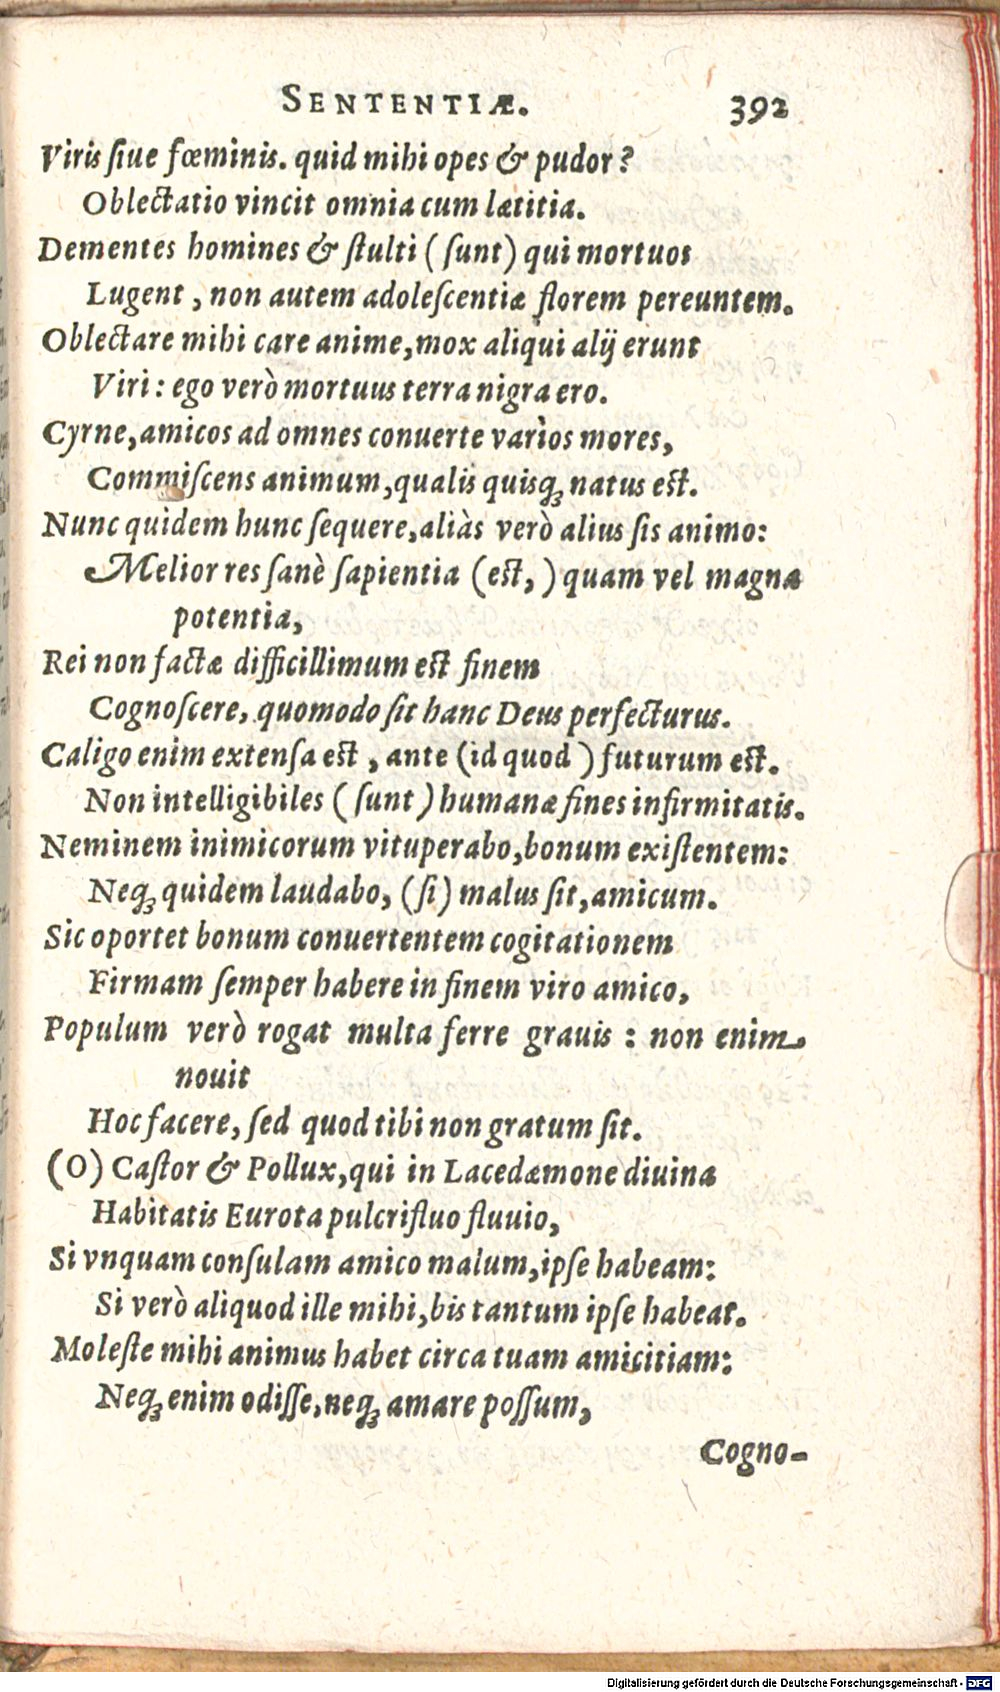 SENTENTIÆ. 392
Viris siue fœminis. quid mihi opes & pudor?
Oblectatio vincit omnia cum lætitia.
Dementes homines & stulti (sunt) qui mortuos
Lugent, non autem adolescentiæ florem pereuntem.
Oblectare mihi care anime, mox aliqui alij erunt
Viri: ego verò mortuus terra nigra ero.
Cyrne, amicos ad omnes conuerte varìos mores,
Commiscens animum, qualis quisq; natus est.
Nunc quidem hunc sequere, aliàs verò alius sis animo:
Melior res sanè sapientia (est,) quam vel magna
potentia,
Rei non factæ difficillimum est finem
Cognoscere, quomodo sit hanc Deus perfecturus.
Caligo enim extensa est, ante (id quod) futurum est.
Non intelligibiles (sunt) humanæ fines infirmitatis.
Neminem inimicorum vituperabo, bonum existentem:
Neq; quidem laudabo, (si) malus sit, amicum.
Sic oportet bonum conuertentem cogitationem
Firmam semper habere in finem viro amico,
Populum verò rogat multa ferre grauis: non enim
nouit
Hoc facere, sed quod tibi non gratum sit.
(O) Castor & Pollux, qui in Lacedæmone diuina
Habitatis Eurota pulcrifluo fluuio,
Si vnquam consulam amico malum, ipse habeam:
Si verò aliquod ille mihi, bis tantum ipse habeat.
Moleste mihi animus habet circa tuam amicitiam:
Neq; enim odisse, neq; amare possum,
Cogno-
Digitalisierung gefördert durch die Deutsche Forschungsgemeinschaft - DFG